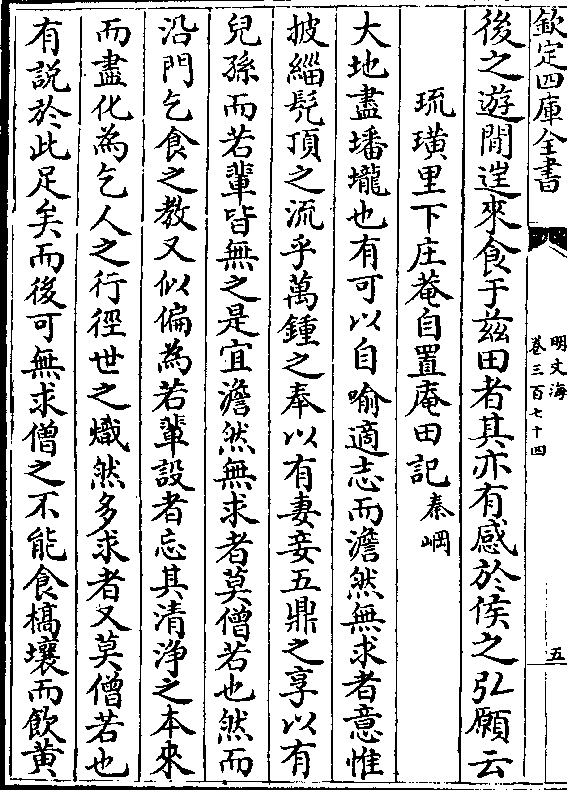 欽定四庫全書
明文海
卷三百七十四
五
後之遊閒逰來食于兹田者其亦有感於侯之弘願云
琉璜里下庄菴自置庵田記秦㟠
大地盡墦壠也有可以自喻適志而澹然無求者意惟
披緇髠頂之流乎萬鍾之奉以有妻妾五鼎之享以有
兒孫而若輩皆無之是宜澹然無求者莫僧若也然而
沿門乞食之教又似偏為若輩設者忘其清淨之本來
而盡化為乞人之行徑世之熾然多求者又莫僧若也
有説於此足矣而後可無求僧之不能食槁壤而飲黄